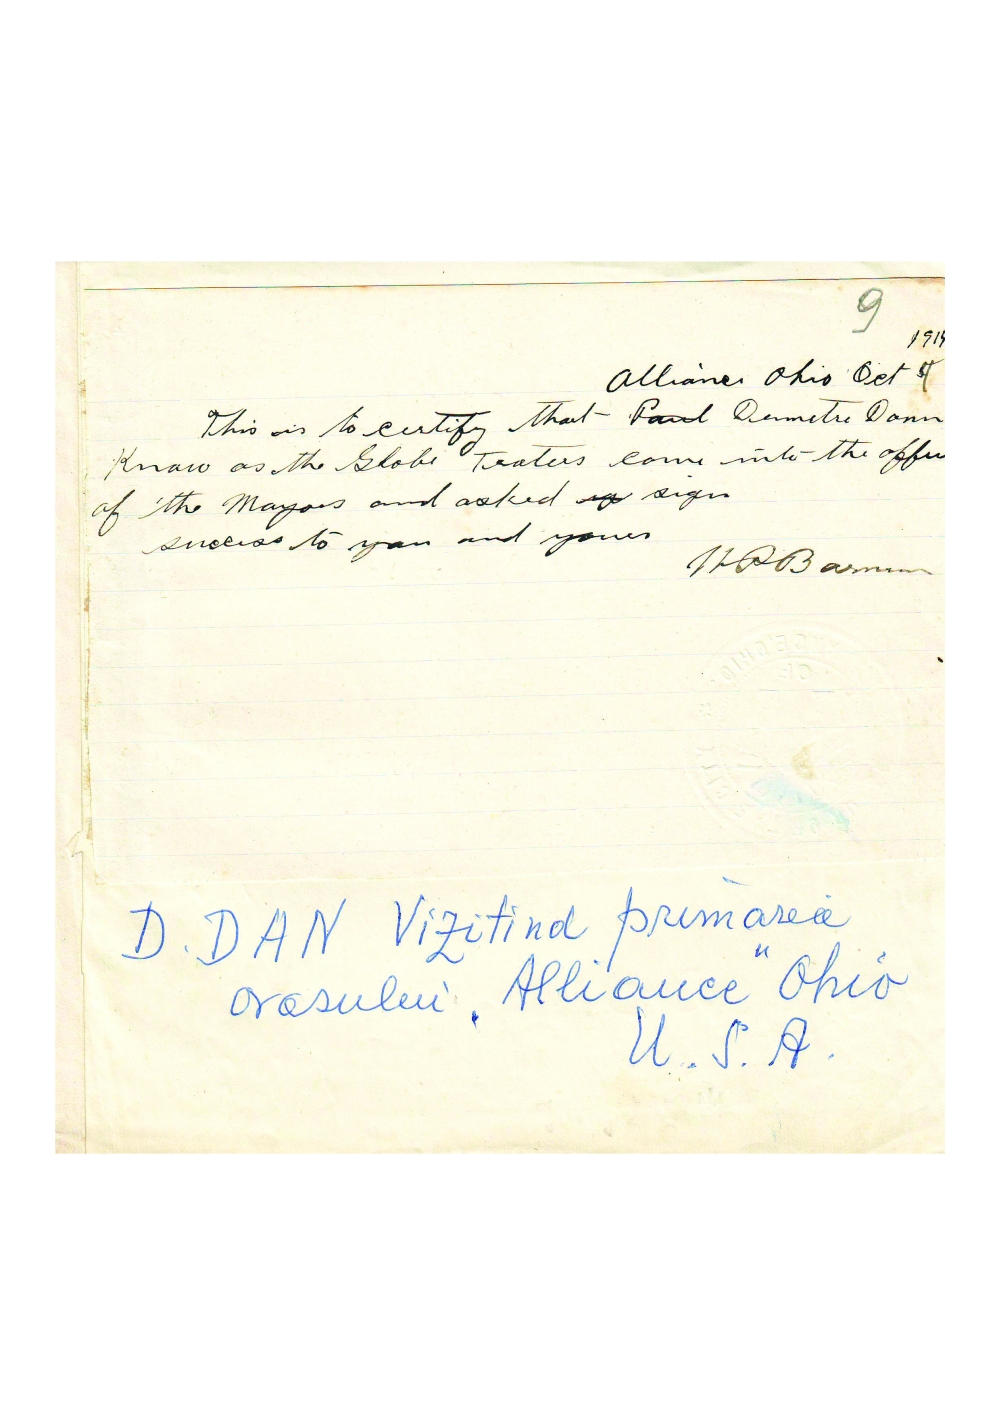 9
191
Alliance Ohio Oct
This is to certify that Paul Demetre Dann
Know as the Globe Traters come into the offic
of the Mayors and asked sign
success to you and yours
W P Barnum
D. DAN Vizitînd primăria
orasului „Alliance" Ohio
U.S.A.